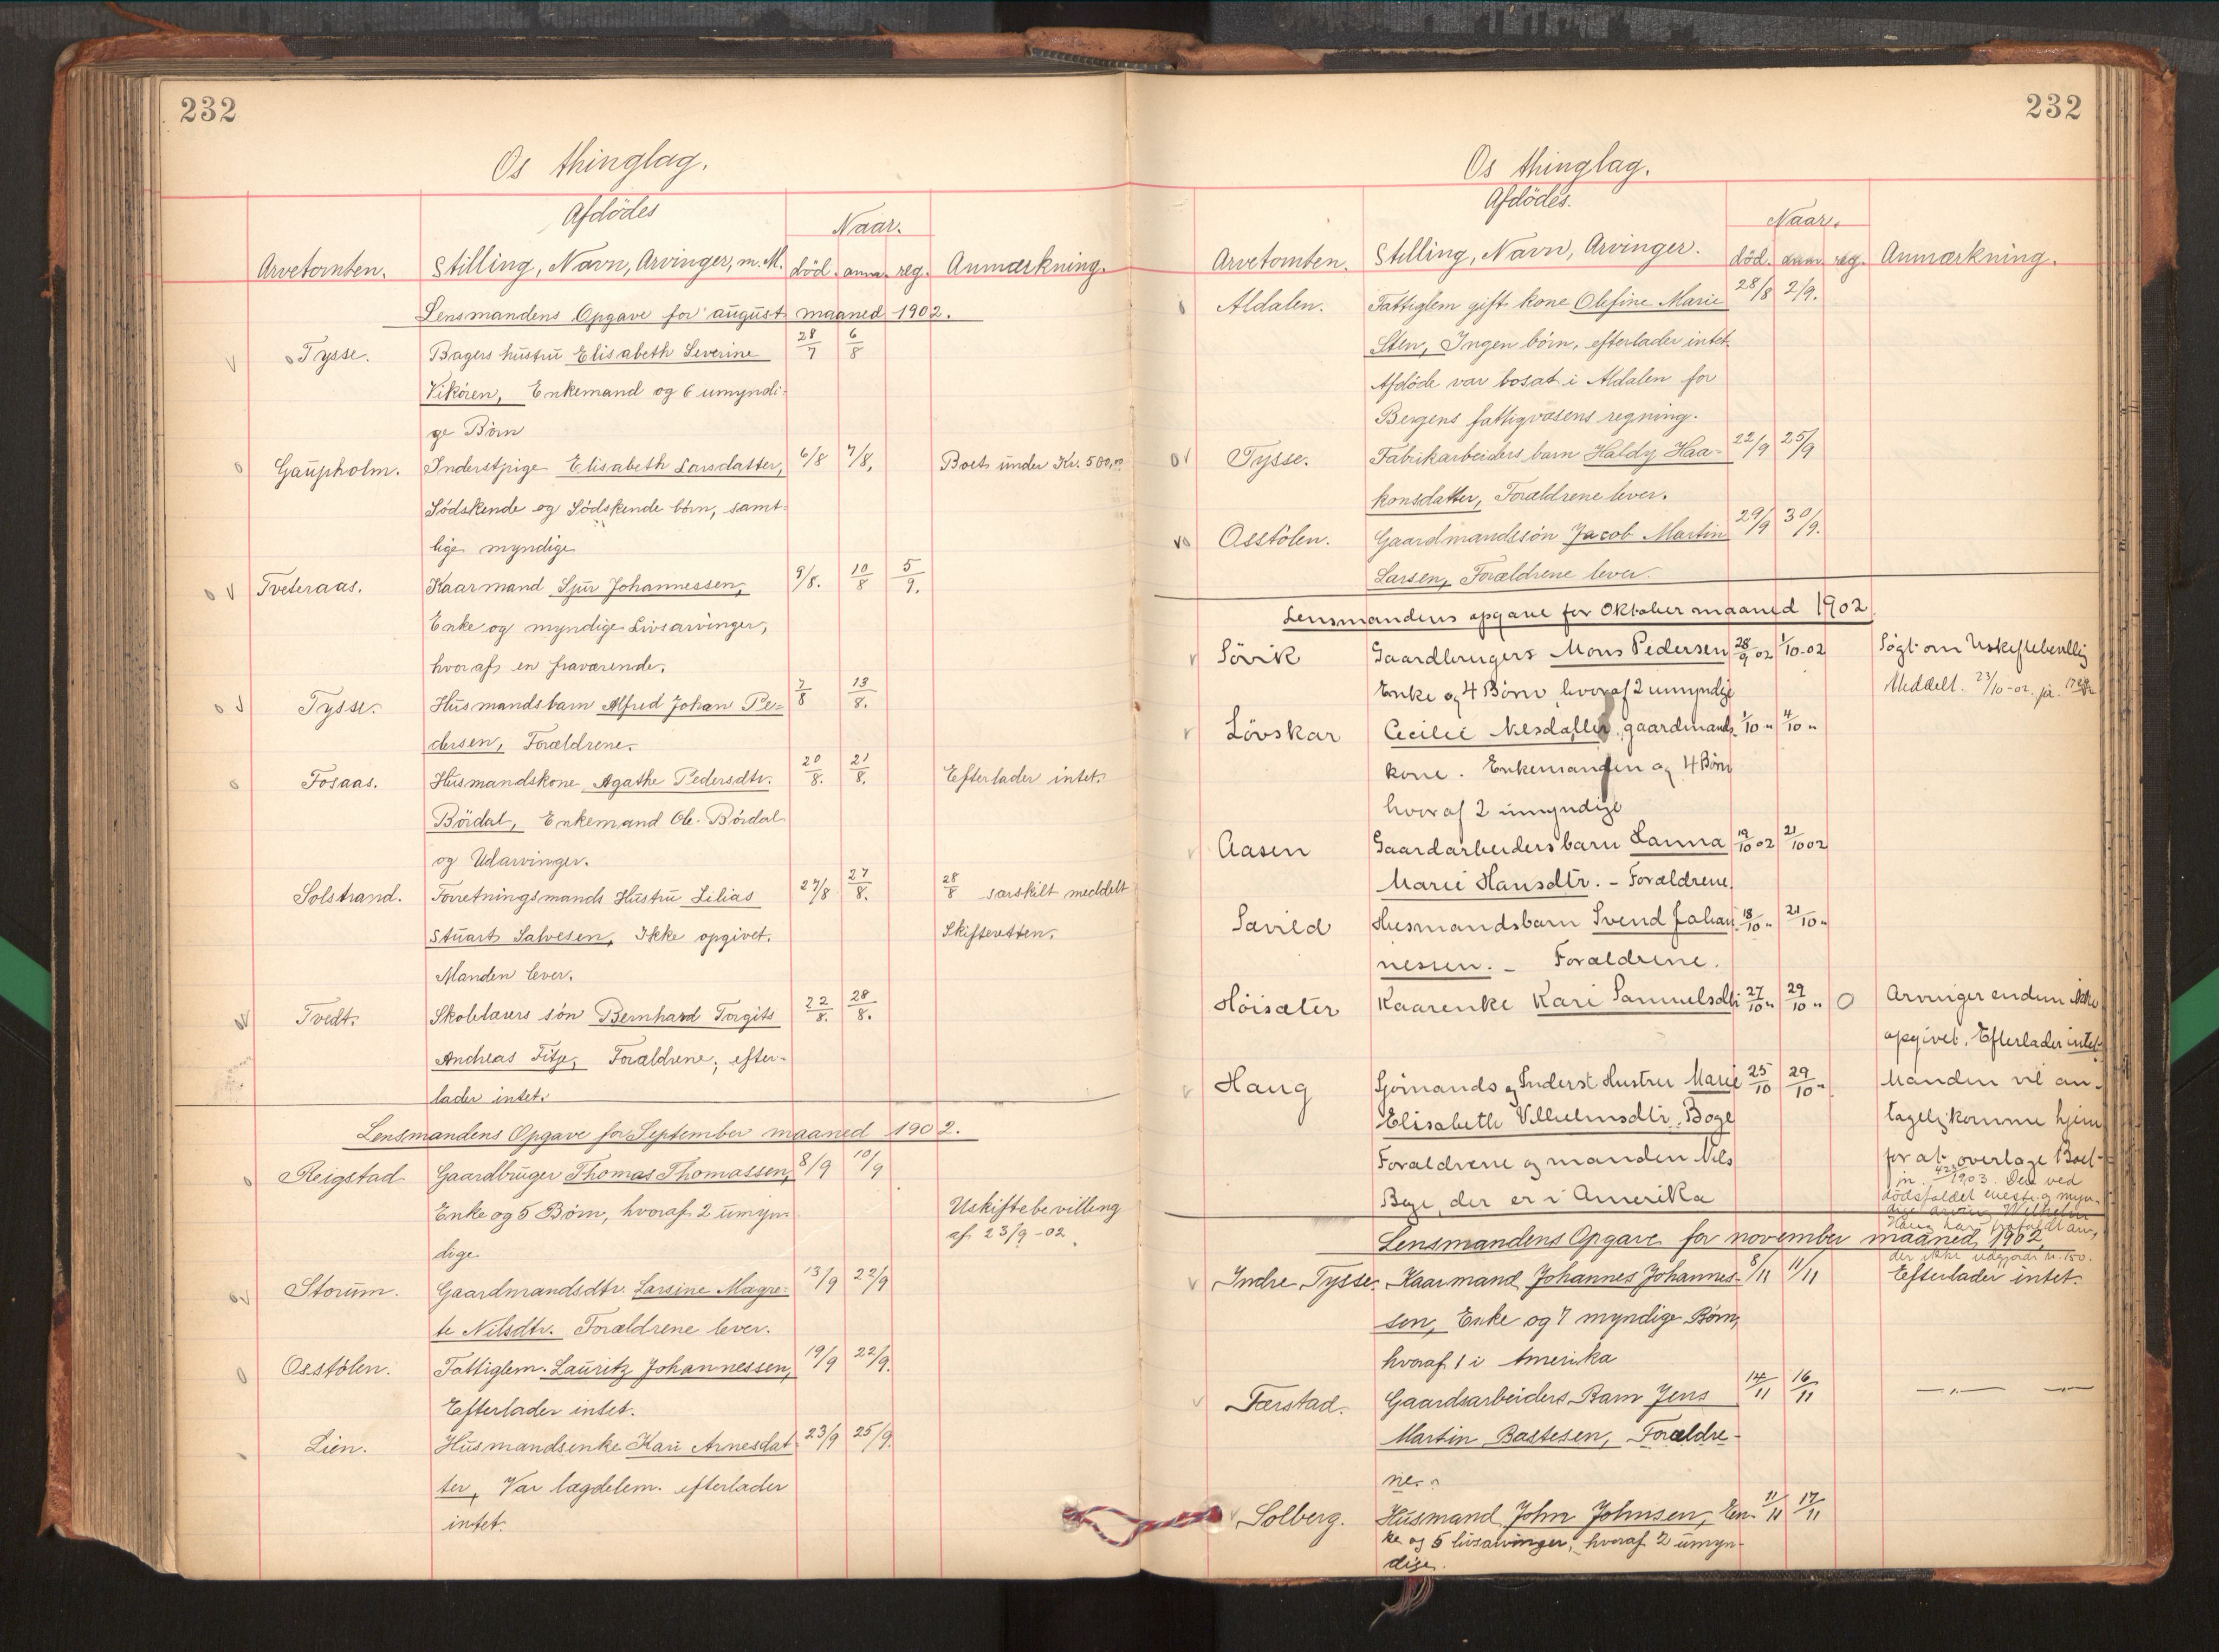 232
Os thinglag.
Afdödes
Naar.
Arvetomten. Stilling, Navn, Arvinger, m. M. död. anm. reg. Anmærkning.
Lensmandens Opgave for august maaned 1902.
Tysse. Bagers hustru Elisabeth Severine 28/7 6/8
Vikören, Enkemand og 6 umyndi-
ge Börn
Gaupholm. Inderstpige Elisabeth Larsdatter, 6/8 7/8, Boet under Kr. 500,00
Södskende og Södskende börn, samt-
lige myndige
Tveteraas. Kaarmand Sjur Johannessen, 9/8. 10/8 5/9.
Enke og myndige Livsarvinger,
hvoraf en fraværende.
Tysse. Husmandsbarn Alfred Johan Pe- 7/8 13/8.
dersen, Forældrene.
Fosaas. Husmandskone Agathe Pedersdtr. 20/8. 21/8. Efterlader intet.
Bördal, Enkemand Ole Bördal
og Udarvinger.
Solstrand. Forretningsmands Hustru Lilias 27/8 27/8. 28/8 særskilt meddelt
Stuart Salvesen, Ikke opgivet. Skifteretten.
Manden lever.
Tvedt. Skolelærers sön Bernhard Torgils 22/8. 28/8.
Andreas Fitje, Forældrene, efter-
lader intet.
Lensmandens Opgave for September maaned 1902.
Reigstad Gaardbruger Thomas Thomassen, 8/9 10/9
Enke og 5 Börn, hvoraf 2 umyn- Uskiftebevilling
dige. af 23/9-02.
Storum. Gaardmandsdtr. Larsine Magre- 13/9 22/9
te Nilsdtr. Forældrene lever.
Osstölen. Fattiglem. Lauritz Johannessen, 19/9 22/9.
Efterlader intet.
Lien. Husmandsenke Kari Arnesdat 23/9 25/9.
ter, Var lægdelem. efterlader
intet.
232
Os thinglag.
Afdödes.
Naar.
Arvetomten. Stilling, Navn, Arvinger. död. anm. reg. Anmærkning.
Aldalen. Fattiglem gift kone Olefine Marie 28/8 2/9.
Sten, Ingen börn, efterlader intet.
Afdöde var bosat i Aldalen for
Bergens fattigvæsens regning.
Tysse. Fabrikarbeiders barn Haldy Haa- 22/9 25/9
konsdatter, Forældrene lever.
Osstölen. Gaardmandssön Jacob Martin 29/9 30/9.
Larsen, Forældrene lever.
Lensmandens opgave for Oktober maaned 1902.
Sövik Gaardbrugers Mons Pedersen 28/9 02 1/10-02 Sögt om Uskiftebevillig
Enke og 4 Börn, hvoraf 2 umyndige Meddelt. 23/10-02. jr.
Lövskar Cecilie Nilsdatter, gaardmands 1/10 " 4/10 "
kone. Enkemanden og 4 Börn
hvoraf 2 umyndige
Aasen Gaardarbeidersbarn Lanna 19/10 02 21/10 02
Marie Hansdtr. - Forældrene.
Savild Husmandsbarn Svend Johan 18/10 " 21/10 "
nessen. - Forældrene.
Höisæter Kaarenke Kari Samuelsdtr 27/10 " 29/10 " O Arvinger endnu ikke
opgivet. Efterlader intet.
Haug Sjömands og Inderst Hustru Marie 25/10 29/10 " Manden vil an-
Elisabeth Villielmsdtr. Boge tagelig komme hjem
Forældrene og manden Nils for at overtage Boet-
Boge, der er i Amerika jr. 1903. Den ved
dödsfaldet eneste og myn-
dige arving
der ikke udgjorde kr. 150.
Lensmandens Opgave for november maaned 1902.
Indre Tysse. Kaarmand Johannes Johannes- 8/11 11/11 Efterlader intet.
sen, Enke og 7 myndige Börn,
hvoraf 1 i Amerika
Færstad. Gaardsarbeiders Barn Jens 14/11 16/11 —"— —"—
Martin Bastesen, Forældre-
ne.
Solberg. Husmand John Johnsen, En- 11/11 17/11
ke og 5 livsarvinger, hvoraf 2 umyn-
dige.